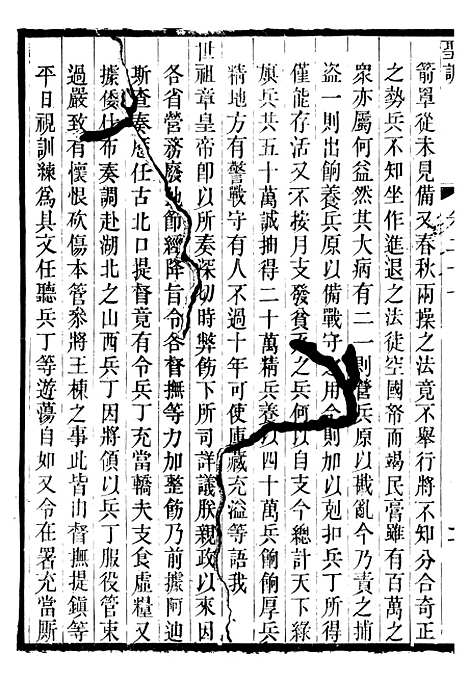 聖訓
箭罩從未見備又春秋兩操之法竟不舉行將不知分合奇正
之勢兵不知坐作進退之法徒空國帑而竭民膏雖有百萬之
衆亦屬何益然其大病有二一則營兵原以戡亂今乃責之捕
盜一則出餉養兵原以備戰守之用今則加以剋扣兵丁所得
僅能存活又不按月支發貧乏之兵何以自支今總計天下綠
旗兵共五十萬誠抽得二十萬精兵養以四十萬兵餉餉厚兵
精地方有警戰守有人不過十年可使庫藏充溢等語我
世祖章皇帝卽以所奏深切時弊飭下所司詳議朕親政以來因
各省營務廢弛節經降旨令各督撫等力加整飭乃前據阿迪
斯查奏歷任古北口提督竟有令兵丁充當轎夫支食虛糧又
據倭什布奏調赴湖北之山西兵丁因將領以兵丁服役管束
過嚴致有懷恨砍傷本管叅將王棟之事此皆由督撫提鎮等
平日視訓練爲具文任聽兵丁等遊蕩自如又令在署充當厮